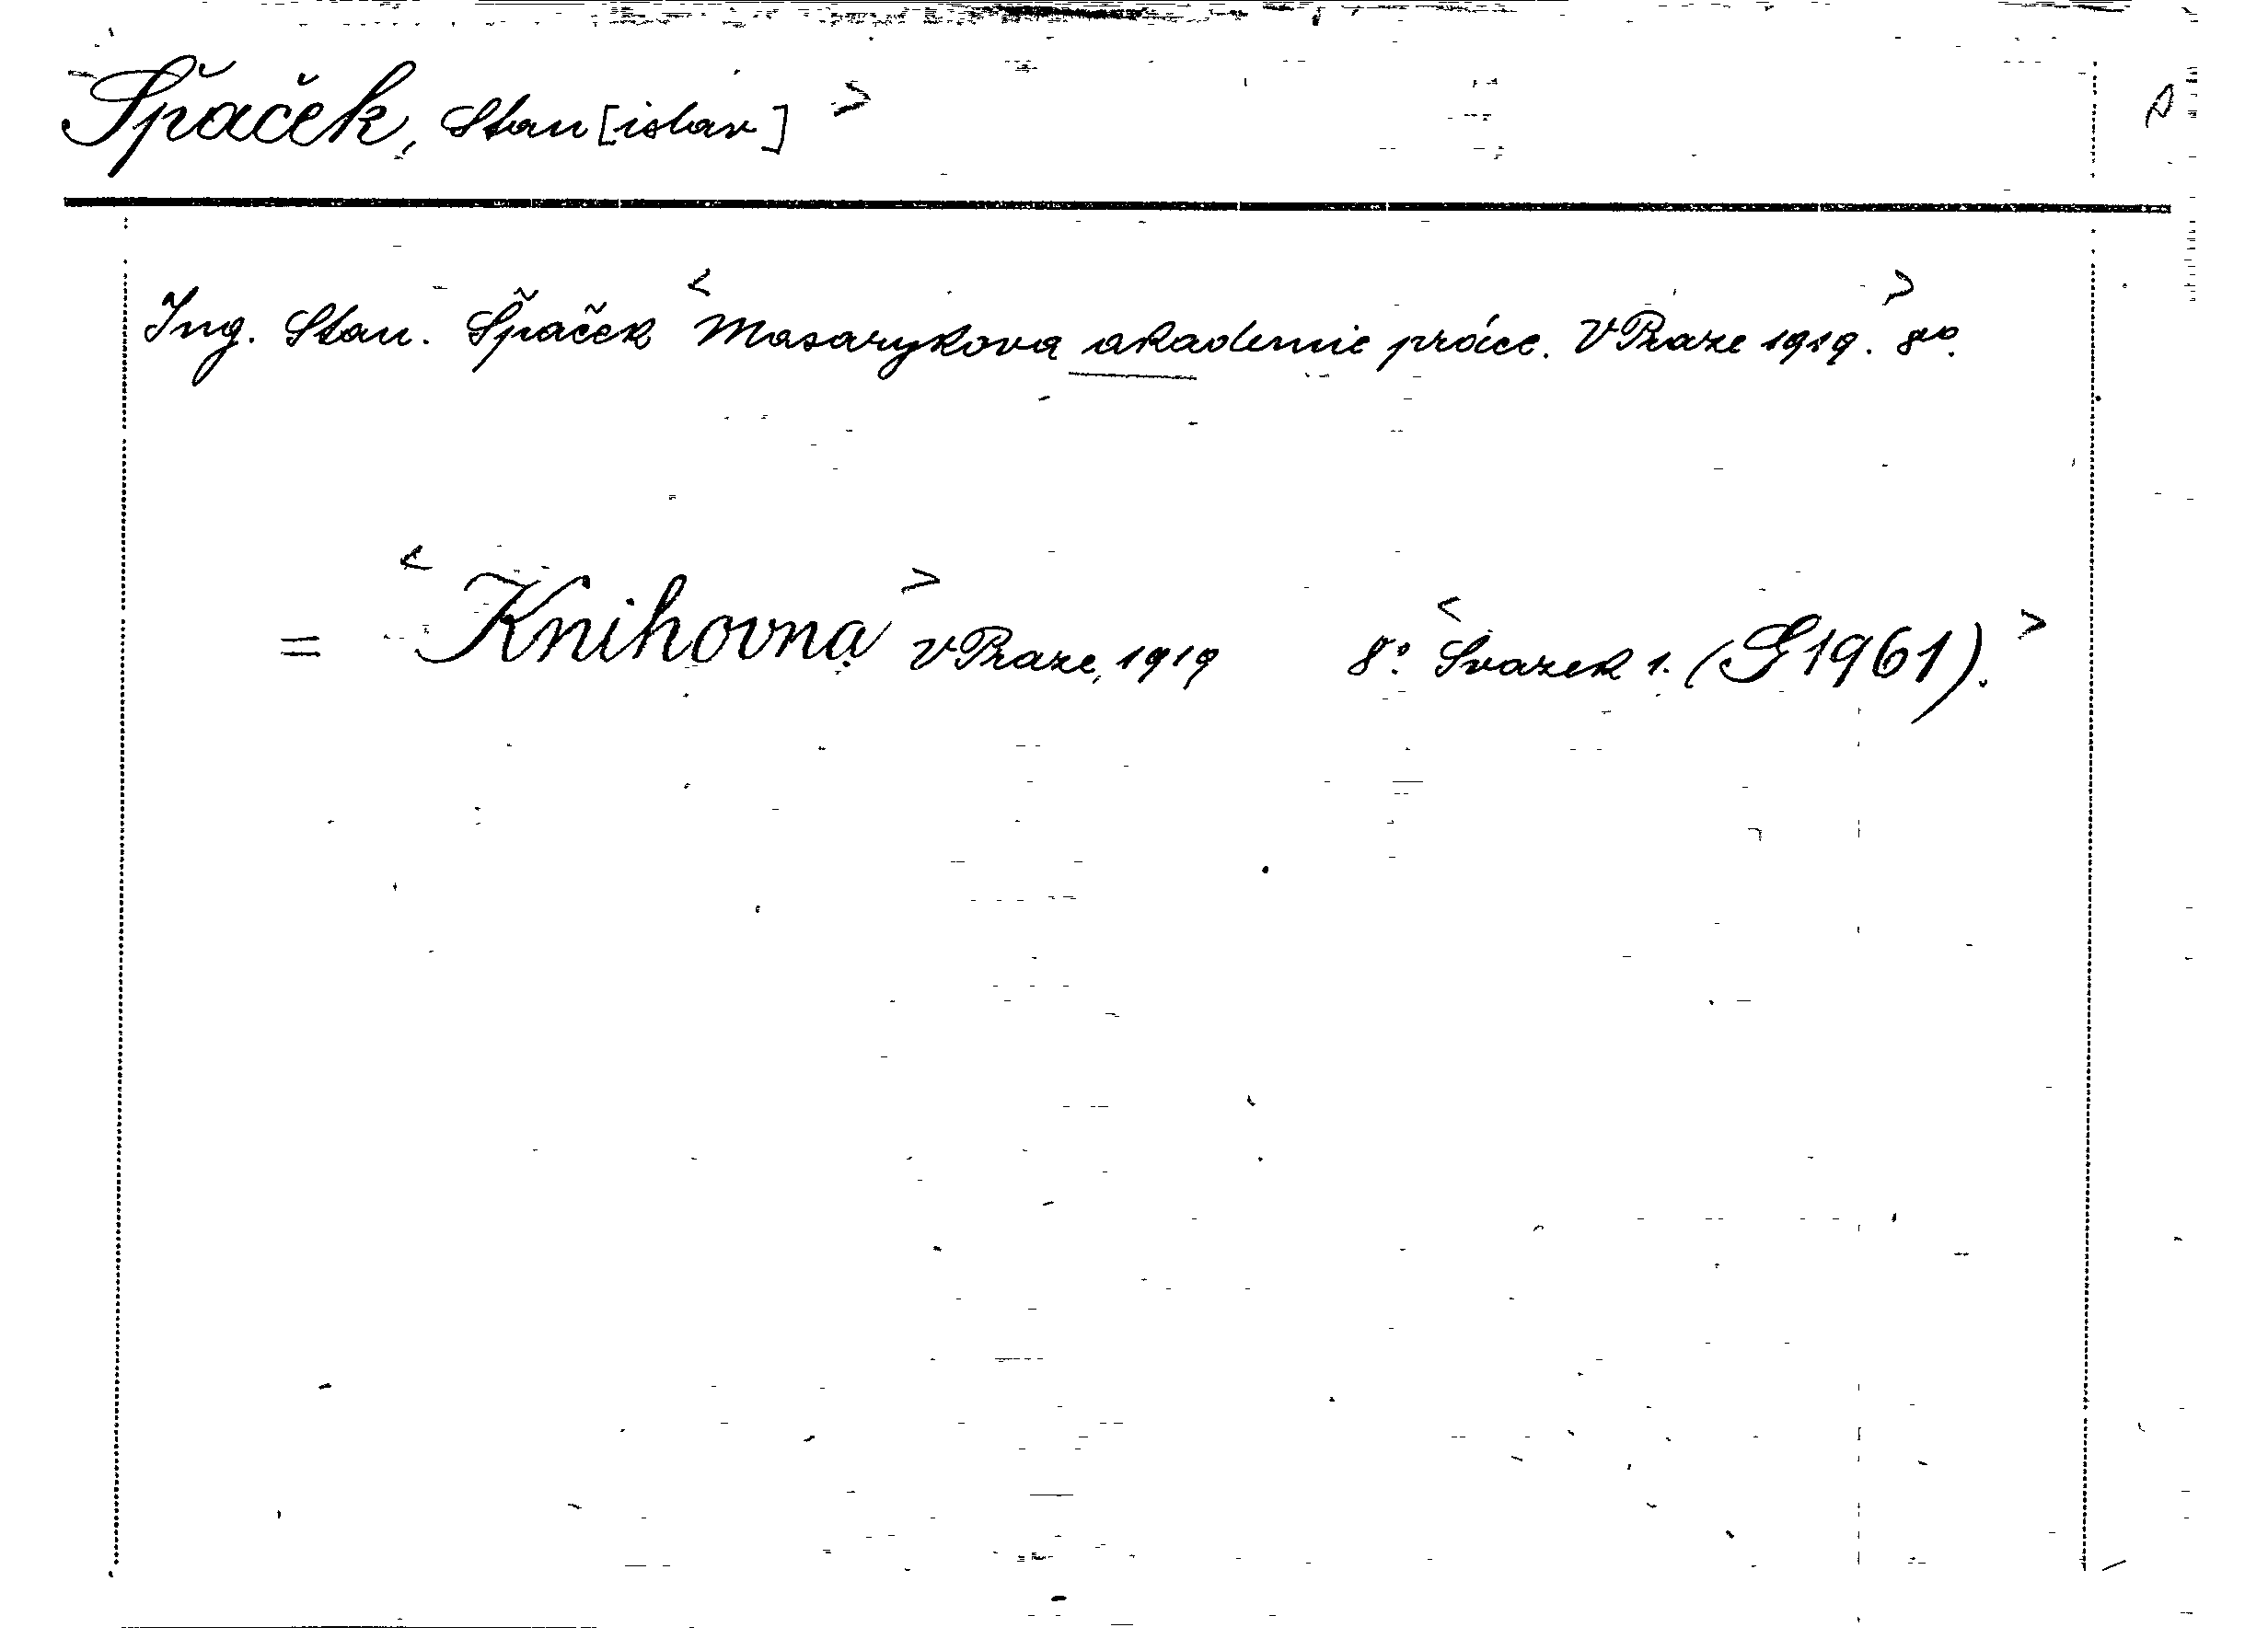 Špaček, Stan[islav] >
Ing. Stan. Špaček < Masarykova akademie práce. V Praze 1919. > 8vo.
= < Knihovna > V Praze, 1919 8º. < Svazek 1. (G 1961). >